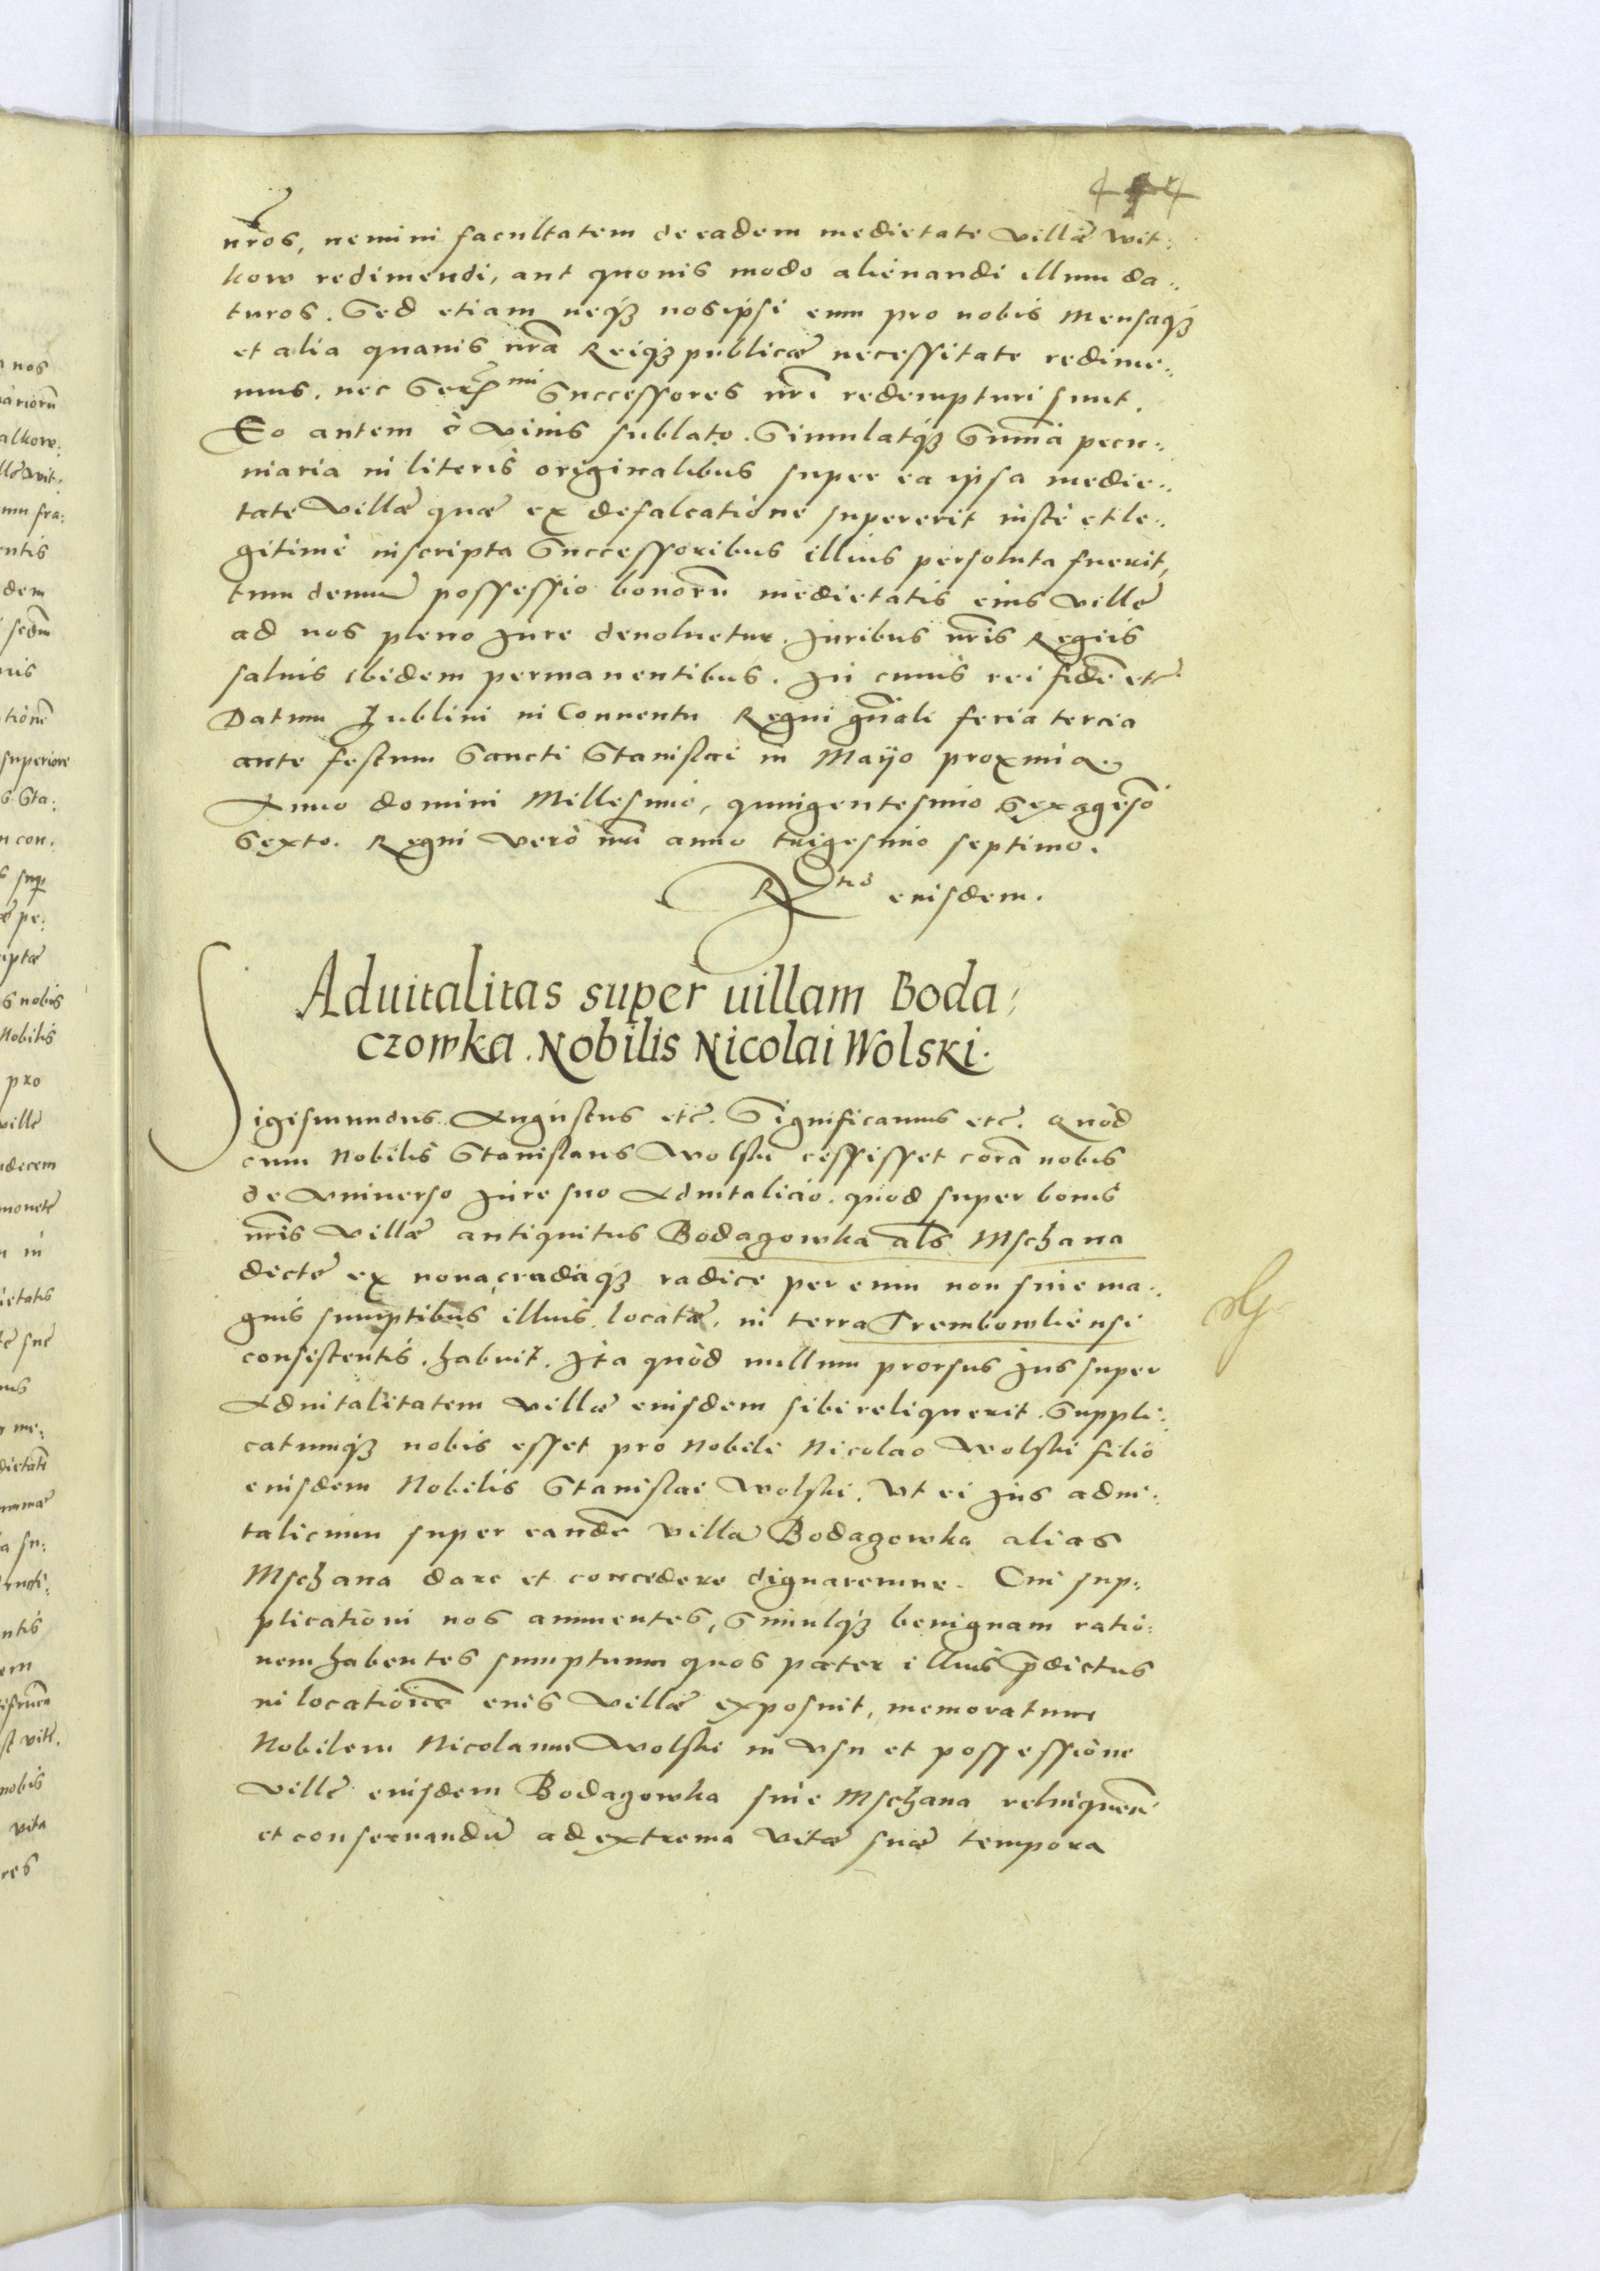 nros, nemini facultatem de eadem medietate villæ Wit:
kow redimendi, aut quouis modo alienandi illum da:
turos. Sed etiam neqȝ nos ipsi eum pro nobis Mensaqȝ
et alia quauis nrã Reiqȝ publicæ necessitate redime:
mus, nec Ser^mi Successores nrĩ redempturi sunt.
Eo autem è viuis sublato. Simulatqȝ Summa pecu:
niaria in literis originalibus super ea ipsa medie:
tate villæ quæ ex defalcatione supererit iustè et le:
gitimè inscripta Successoribus illius persoluta fuerit,
tum demum possessio bonorũ medietatis eius villæ
ad nos pleno Iure deuoluetur. Iuribus nrĩs Regiis
saluis ibidem permanentibus. In cuius rei fidẽ etc̃
Datum Lublini in Conuentu Regni gñali feria tercia
ante festum Sancti Stanislai in Maijo proxima.
Anno domini Millesimo, quingentesimo Sexagesõ
Sexto. Regni verò nrĩ anno trigesimo septimo.
R^tio eiusdem.
Aduitalitas super uillam Boda:
czowka. Nobilis Nicolai Wolski.
Sigismundus Augustus etc̃. Significamus etc̃. Quòd
cum Nobilis Stanislaus Wolski cessisset corã nobis
de vniuerso Iure suo Aduitalicio. quod super bonis
nrĩs villæ antiquitus Bodazowka als Mschana
dictæ ex noua, crudaqȝ radice per eum non sine ma:
gnis sumptibus illius locatæ, in terra Trembowliensi
consistentis. habuit. Ita quòd nullum prorsus Ius super
Aduitalitatem villæ eiusdem sibi reliquerit. Suppli:
catumqȝ nobis esset pro Nobili Nicolao Wolski filio
eiusdem Nobilis Stanislai Wolski. Vt ei Ius adui:
talicium super eandẽ villã Bodazowka alias
Mschana dare et concedere dignaremur. Cui sup:
plicationi nos annuentes, Simulqȝ benignam ratio:
nem habentes sumptuum quos pater illius p̃dictus
in locationẽ eius villæ exposuit, memoratum
Nobilem Nicolaum Wolski in vsu et possessione
villæ eiusdem Bodazowka siue Mschana relinquenđ
et conseruandũ ad extrema vitæ suæ tempora